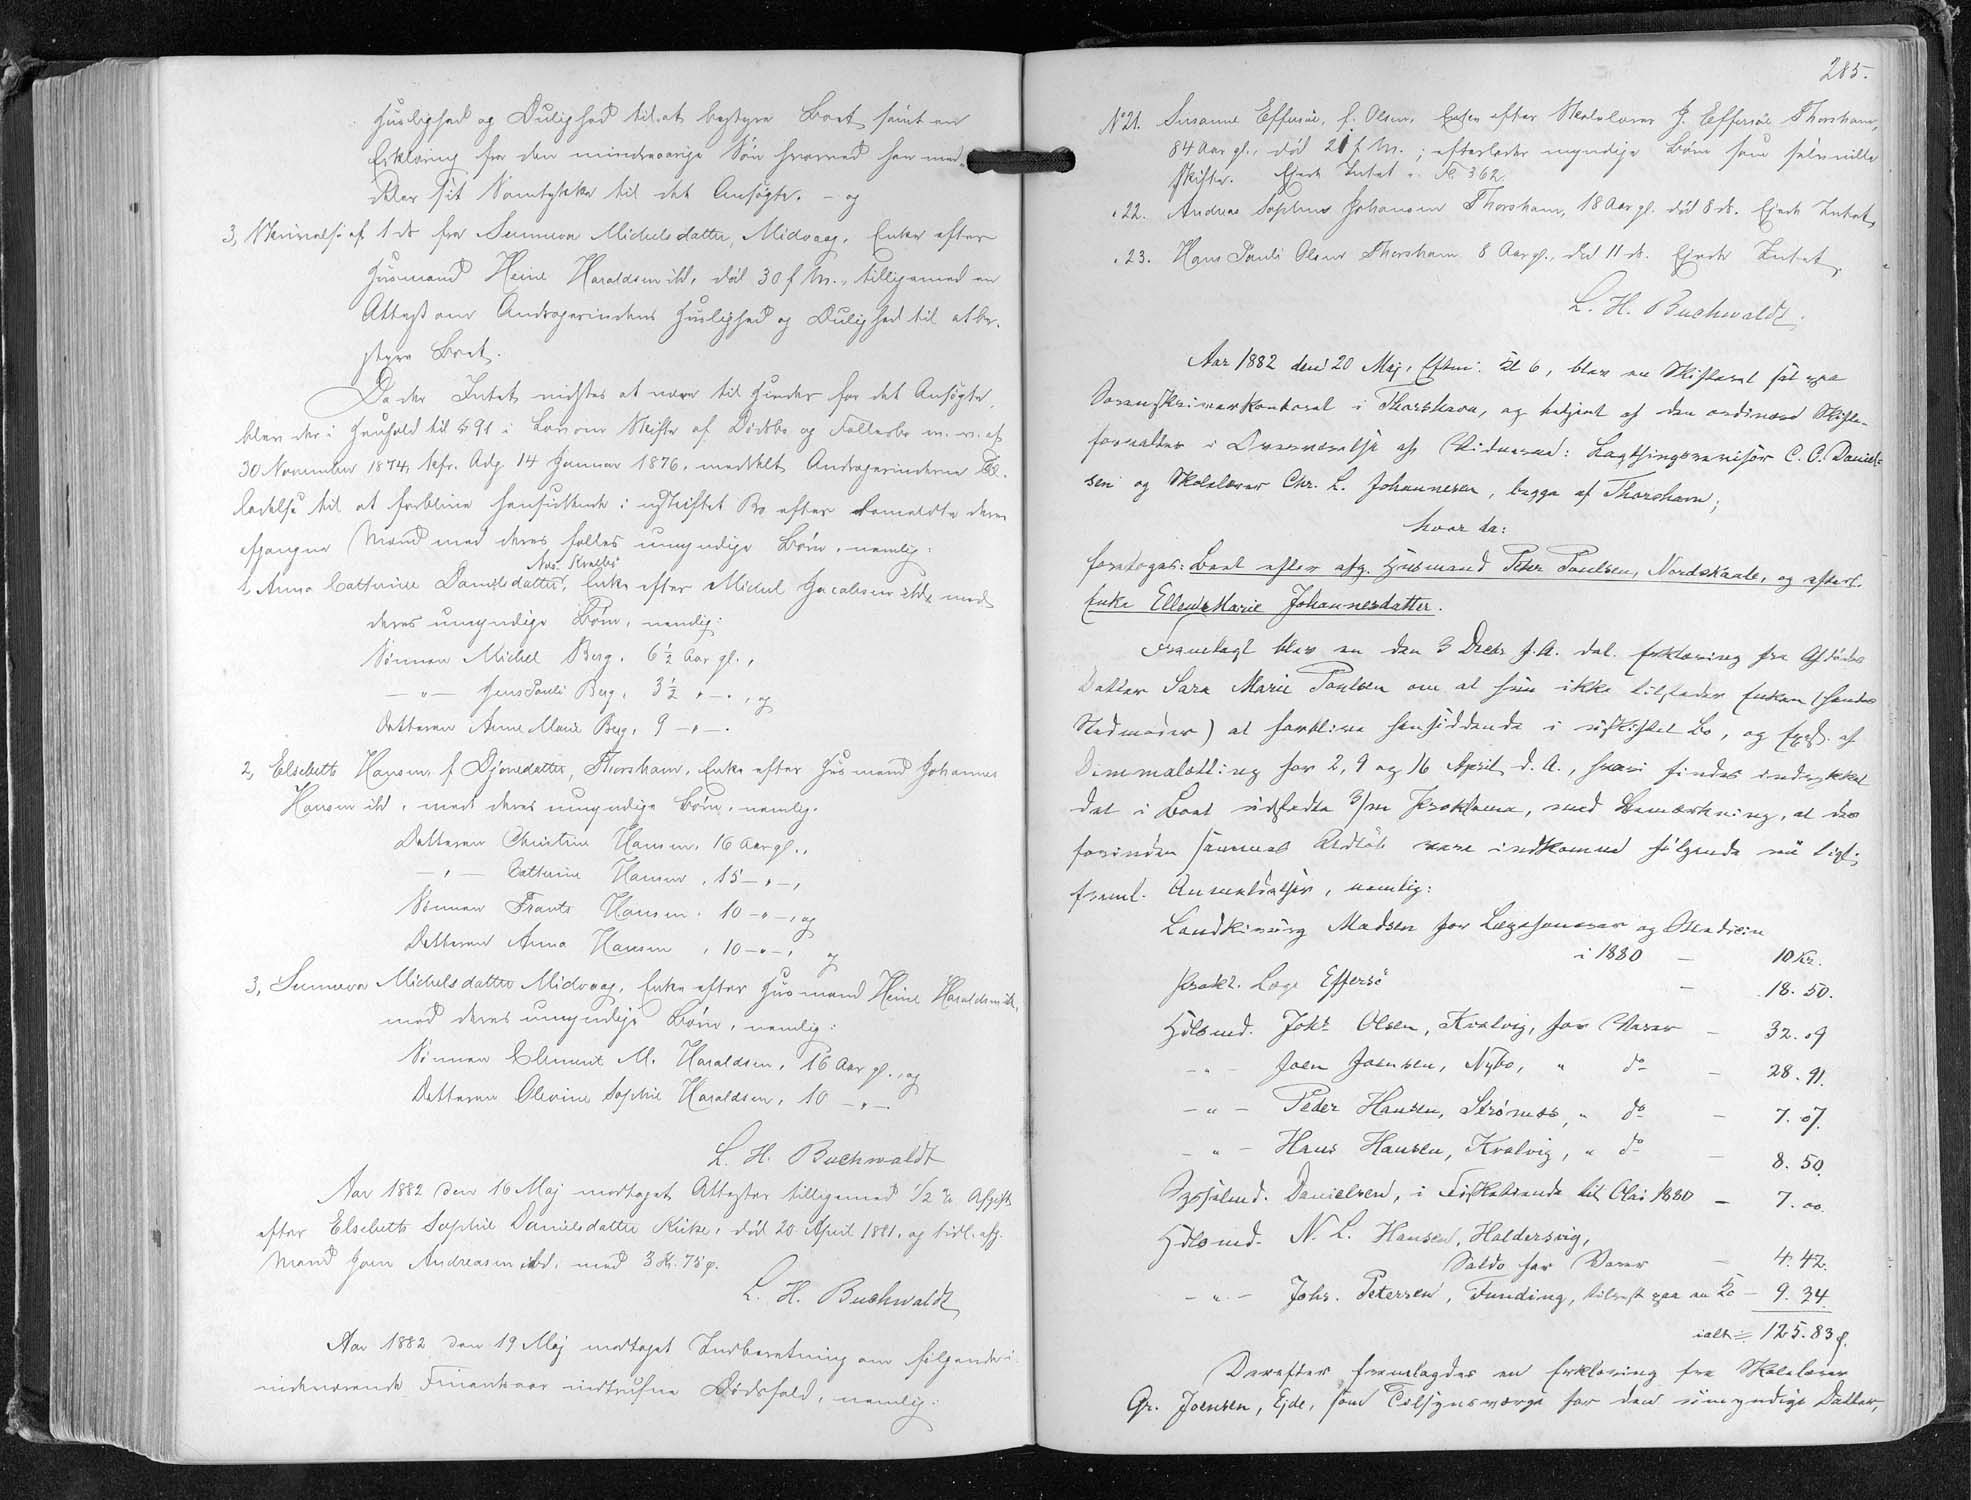 Huslighed og Dulighed til at bestyre Boet samt en
Erklæring fra den mindreaarige Søn hvorved han med-
deler sit Samtykke til det Ansøgte. – og
3, Skrivelse af 1 ds fra Sunneva Michelsdatter, Midvaag, Enke efter
Husmand Heine Haraldsen ibd., død 30 f. M., tilligemed en
Attest om Andragerindens Huslighed og Dulighed til at be-
styre Boet.
Da der Intet vidstes at være til Hinder for det Ansøgte,
blev der i Henhold til § 91 i Lov om Skifte af Dødsbo og Fællesbo m. v. af
30 November 1874, kfr. Adg. 14 Januar 1876, meddelt Andragerinderne Til-
ladelse til at forblive hensiddende i uskiftet Bo efter bemeldte deres
afgangne Mænd med deres fælles umyndige Børn, nemlig:
Kvalbø
1, Anna Cathrine Danielsdatter, Enke efter Michel Jacobsen ibd. med
deres umyndige Børn, nemlig:
Sønnen Michel Berg, 6½ Aar gl.,
– " – Hens Pauli Berg, 3½ " – ", og
Datteren Anne Marie Berg, 9 – " –.
2, Elsebeth Hansen, f. Djonedatter, Thorshavn, Enke efter Husmand Johannes
Hansen ibd., med deres umyndige Børn, nemlig.
Datteren Christine Hansen, 16 Aar gl.,
– " – Cathrine Hansen, 15 – " –,
Sønnen Frants Hansen, 10 – " –, og
Datteren Anna Hansen, 10 – " –, og
3, Sunneva Michelsdatter Midvaag, Enke efter Husmand Heine Haraldsen ibd.,
med deres umyndige Børn, nemlig:
Sønnen Clement M. Haraldsen, 16 Aar gl., og
Datteren Olevine Sophie Haraldsen, 10 – " –.
L. H. Buchwaldt
Aar 1882 den 16 Maj modtaget Attester tilligemed ½ % Afgift
efter Elsebeth Sophie Danielsdatter Kirke, død 20 April 1881, og tidl. afg.
Mand Joen Andreasen ibd. med 3 Kr. 75 Ø.
L. H. Buchwaldt
Aar 1882 den 19 Maj modtaget Indberetning om følgende i
indeværende Finantsaar indtrufne Dødsfald, nemlig:
285.
No 21. Susanne Effersøe, f. Olsen, Enke efter Skolelærer J. Effersøe Thorshavn,
84 Aar gl., død 21 f. M.; efterlader myndige Børn som selv ville
skifte. Ejede Intet. Fl. 362.
" 22. Andreas Sophus Johansen Thorshavn, 18 Aar gl. død 8 ds. Ejede Intet.
" 23. Hans Pauli Olsen Thorshavn 8 Aar gl., død 11 ds. Ejede Intet.
L. H. Buchwaldt.
Aar 1882 den 20 Maj, Eftm. Kl 6, blev en Skifteret sat paa
Sorenskriverkontoret i Thorshavn, og betjent af den ordinære Skifte-
forvalter i Overværelse af Vidnerne: Lagthingsrevisor C. C. Daniel-
sen og Skolelærer Chr. L. Johannesen, begge af Thorshavn;
hvor da:
foretoges: Boet efter afg. Husmand Peter Poulsen, Nordskaale, og efterl.
Enke Ellen Marie Johannesdatter.
Fremlagt blev en den 3 Decbr. f. A. dat. Erklæring fra Afdødes
Datter Sara Marie Poulsen om at hun ikke tilsteder Enken (hendes
Stedmoder) at forblive hensiddende i uskiftet Bo, og Expl. af
Dimmalætting for 2, 9 og 16 April d. A., hvori findes indrykket
det i Boet udstedte 3/m Proklama, med Bemærkning, at der
forinden sammes Udløb vare indkomne følgende nu ligel.
freml. Anmeldelser, nemlig:
Landkirurg Madsen for Lægehonorar og Medicin
i 1880 – 10 Kr.
Prakt. Læge Effersø – 18. 50.
Hdlsmd. Johs Olsen, Kvalvig, for Varer – 32. 09
– " – Joen Joensen, Nybo, " do – 28. 91.
– " – Peder Hansen, Strømnes, " do – 7. 07.
– " – Hans Hansen, Kvalvig, " do – 8. 50.
Sysselmd. Danielsen, i Fiskatiende til Olai 1880 – 7. 00.
Hdlsmd. N. L. Hansen, Haldersvig,
Saldo for Varer – 4. 42.
– " – Johs. Petersen, Funding, tilgodt paa en Ko – 9. 34.
ialt = 125. 83 Ø.
Derefter fremlagdes en Erklæring fra Skolelærer
Gr. Joensen, Ejde, som Tilsynsværge for den umyndige Datter,